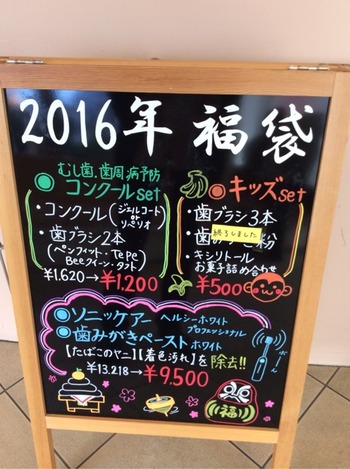 2016年 福袋
むし歯、歯周病予防
コンクールset
・コンクール(ジェルコート or リペリオ)
・歯ブラシ2本
(ペンフィット・TePe
Beeクイーン・タフト)
¥1.620→¥1.200
キッズset
・歯ブラシ3本
終了しました
・歯 粉
・キシリトール
お菓子詰め合わせ
¥500
ソニッケアー ヘルシーホワイト
プロフェッショナル
歯みがきペースト ホワイト
【たばこのヤニ】【着色汚れ】を除去!!
¥13.218→¥9.500
福